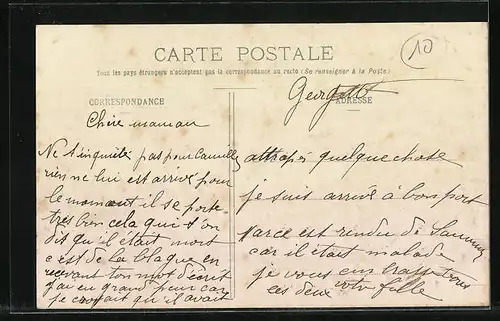 CARTE POSTALE
10
Tous les pays étrangers n'acceptent pas la correspondance au recto (Se renseigner à la Poste)
Georgette
CORRESPONDANCE
ADRESSE
Chère maman
Ne t'inquiète pas pour Camille
rien ne lui est arrivé pour
le moment il se porte
très bien cela qui t'on
dit qu'il était mort
c'est de la blague en
recevant ton mot d'écrit
j'ai eu grand peur car
je croyait qu'il avait
attrapé quelque chose
je suis arrivé à bon port
est rendu de Saumur
car il était malade
je vous embrasse tous
les deux votre fille